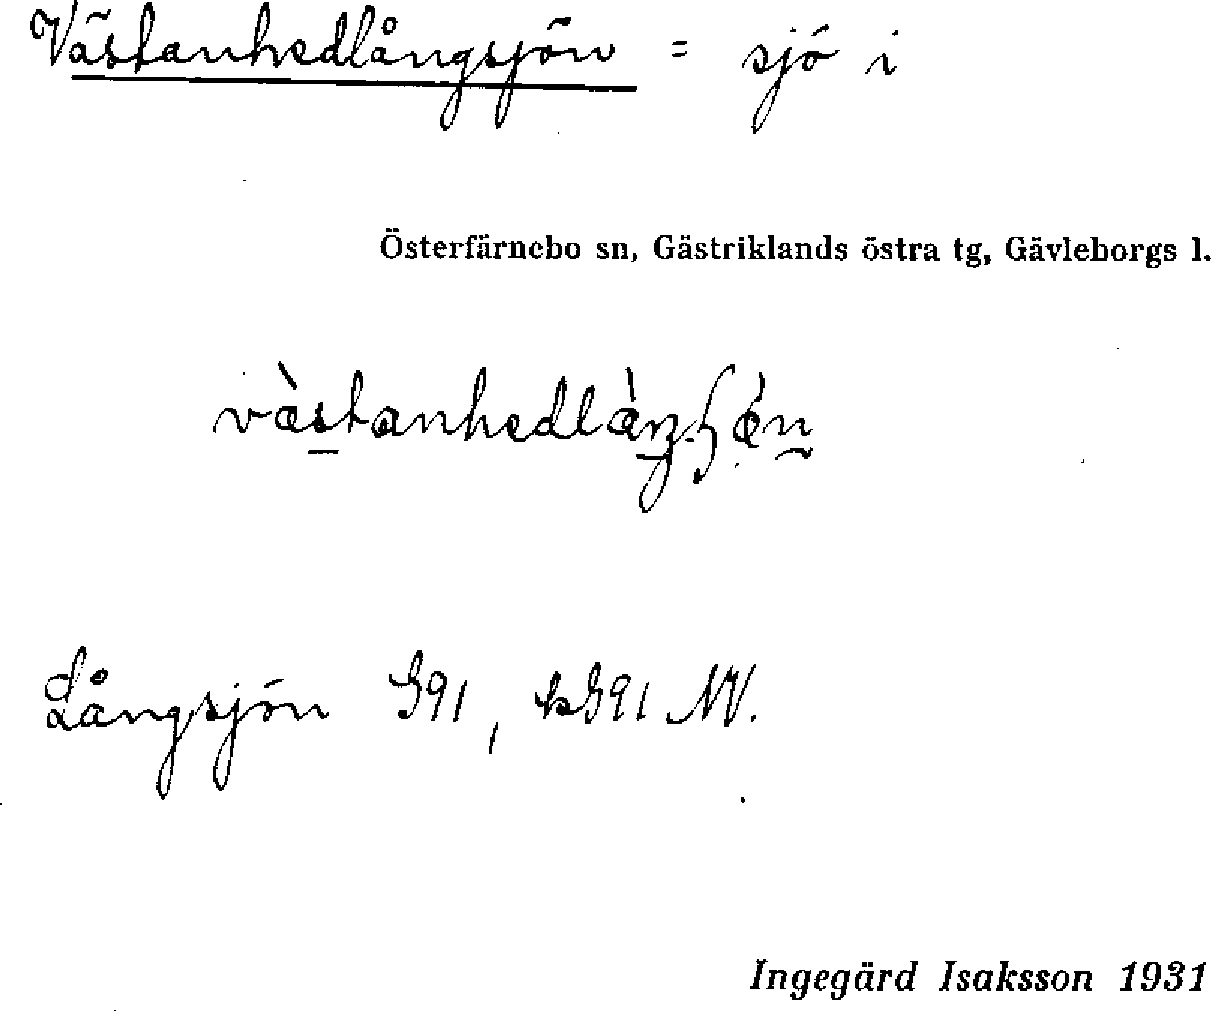 Västanhedlångsjön = sjö i
Österfärnebo sn, Gästriklands östra tg, Gävleborgs l.
Långsjön G91, kG91 NV.
Ingegärd Isaksson 1931